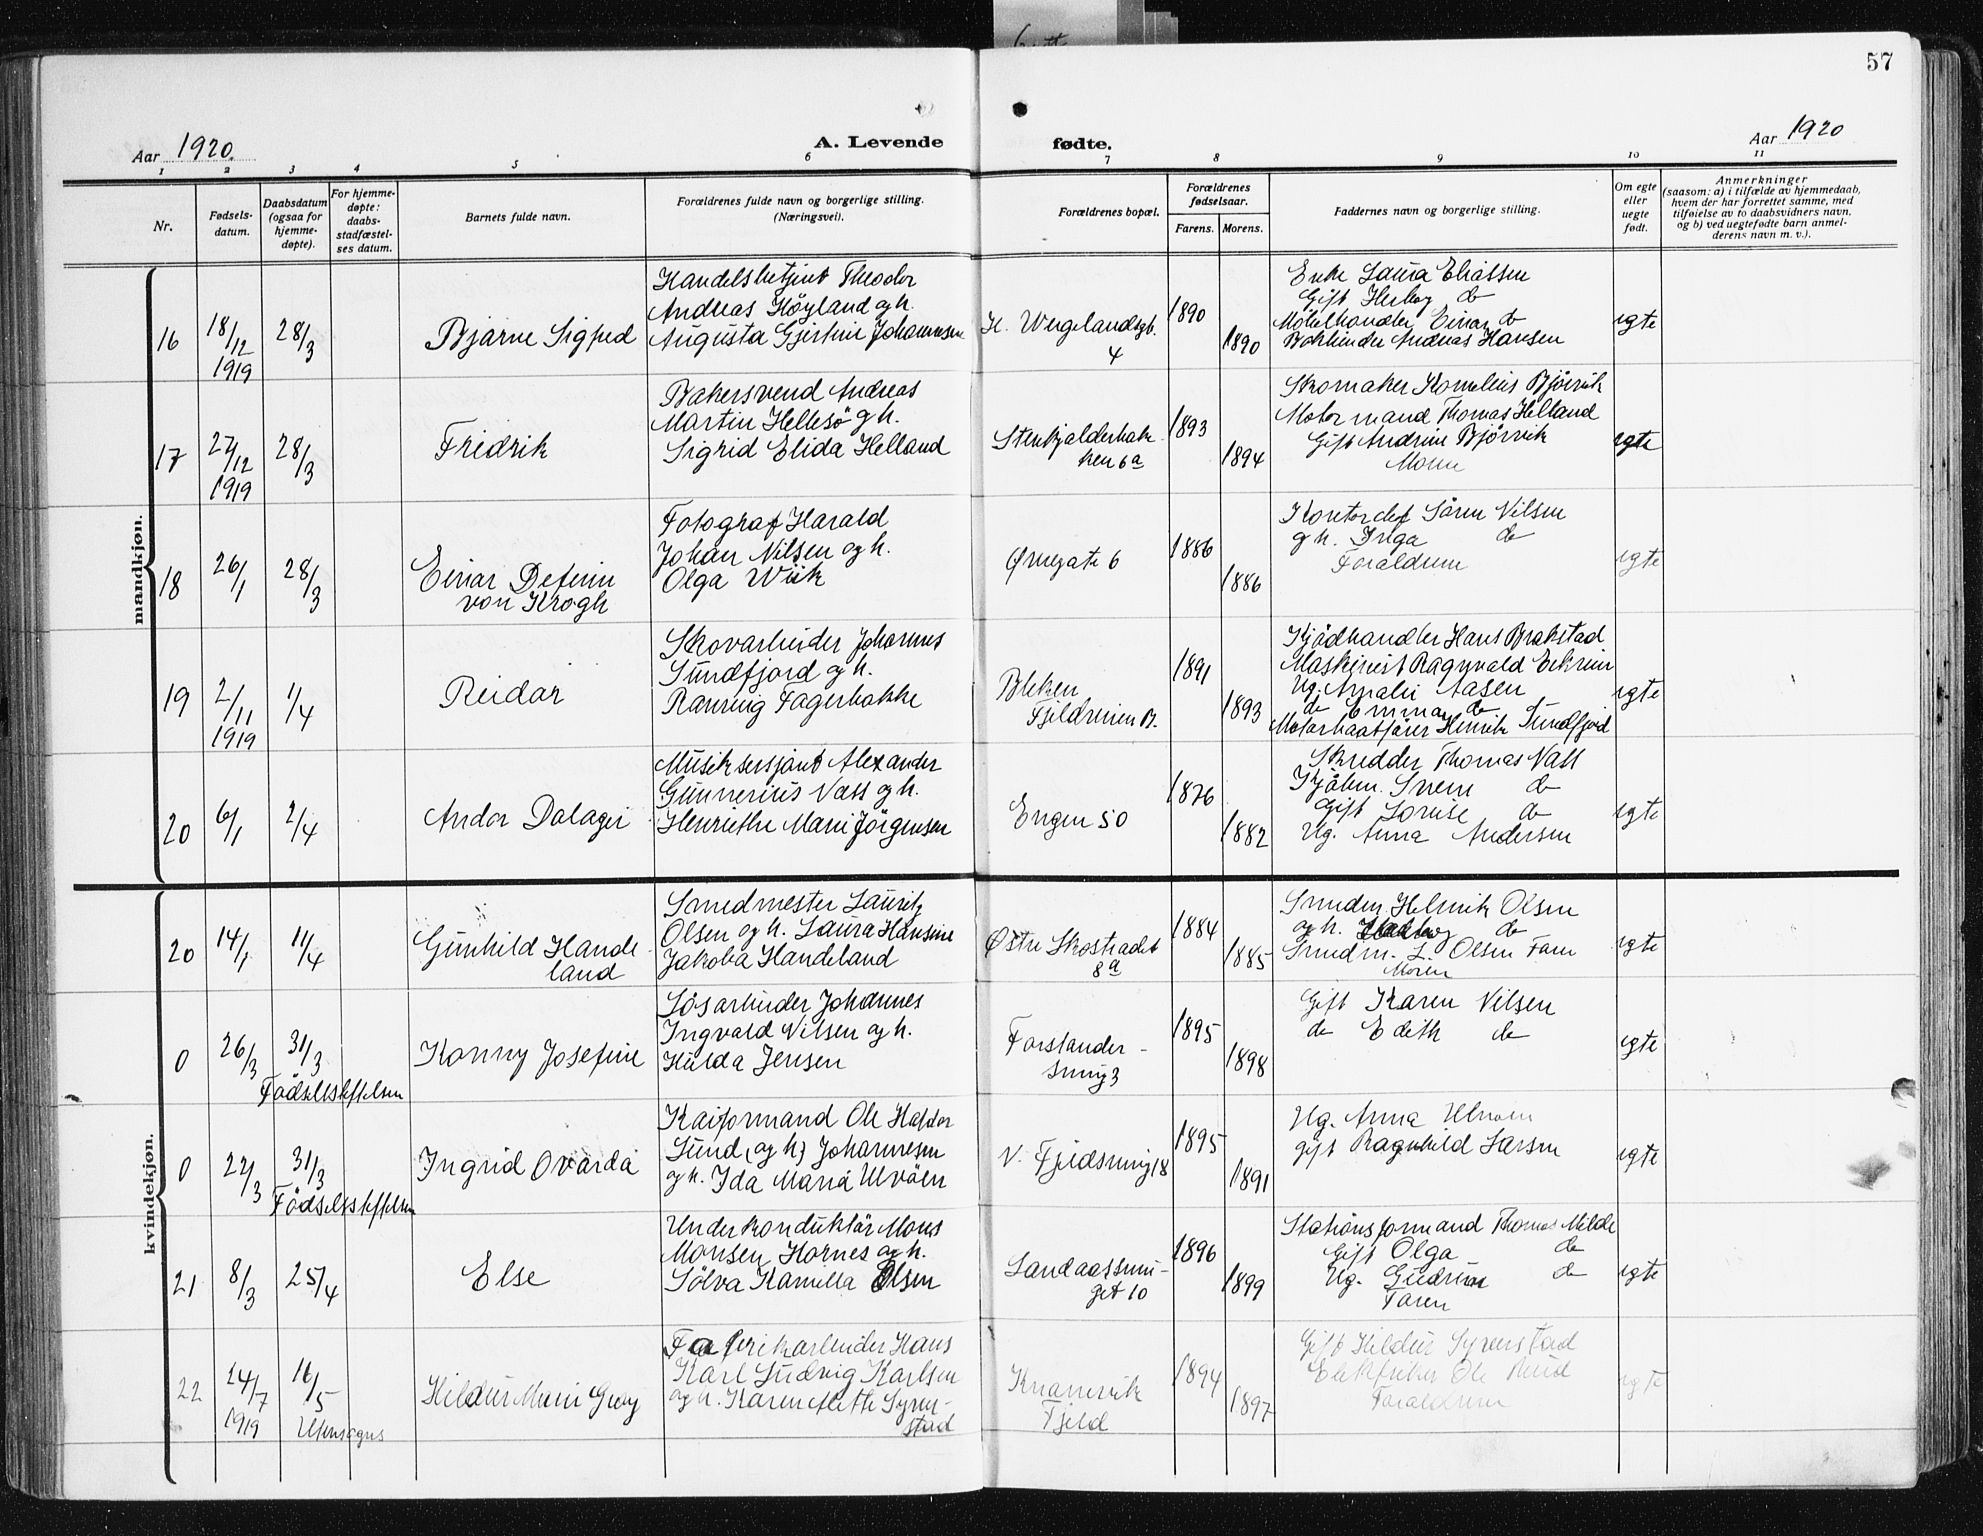 57
Aar 1920.
A. Levende
fødte.
Aar 1920
1 2 3 4 5 6 7 8 9 10 11
Nr.
Fødsels-
datum.
Daabsdatum
(ogsaa for
hjemme-
døpte).
For hjemme-
døpte:
daabs-
stadfæstel-
ses datum.
Barnets fulde navn.
Forældrenes fulde navn og borgerlige stilling.
(Næringsvei).
Forældrenes bopæl.
Forældrenes
fødselsaar.
Farens. Morens.
Faddernes navn og borgerlige stilling.
Om egte
eller
uegte
født.
Anmerkninger
(saasom: a) i tilfælde av hjemmedaab,
hvem der har forrettet samme, med
tilføielse av to daabsvidners navn,
og b) ved uegtefødte barn anmel-
derens navn m. v.).
mandkjøn.
16
18/12
1919
28/3
Bjarne Sigfred
Handelsbetjent Theodor
Andreas Høyland og h.
Augusta Gjertine Johannesen
H. Wergelandsgt.
4
1890
1890
Enke Laura Eliassen
Gift Herborg do
Møbelhandler Einar do
Bokbinder Andreas Hansen
egte
17
27/12
1919
28/3
Fridrik
Bakersvend Andreas
Martin Hellesö og h.
Sigrid Elida Helland
Stenkjelderbak-
ken 6a
1893
1894
Skomaker Kornelius Bjørvik
Motormand Thomas Helland
Gift Andrine Bjørvik
Moren
egte
18
26/1
28/3
Einar Deferin
von Krogh
Fotograf Harald
Johan Nilsen og h.
Olga Wiik
Ørnegate 6
1886
1886
Kontorchef Sören Nilsen
og h. Inga do
Forældrene
egte
19
2/11
1919
1/4
Reidar
Skovarbeider Johannes
Sundfjord og h.
Ranveig Fagerbakke
Bleken
Fjeldveien B.
1891
1893
Kjödhandler Hans Brakstad
Maskinist Ragnvald Eikrem
Ug. Amalie Aasen
do Emma do
Motorbaatfører Henrik Sundfjord
egte
20
6/1
2/4
Andor Dalager
Musiksersjant Alexander
Gunnerius Nass og h.
Henriethe Marie Jörgensen
Engen 50
1876
1882
Skredder Thomas Nass
Kjøbm. Svein do
Gift Lovise do
Ug. Anna Andersen
egte
kvindekjøn.
20
14/1
11/4
Gunhild Hande-
land
Smedmester Lauritz
Olsen og h. Laura Hansine
Jakoba Handeland
Østre Skostrædet
8a
1884
1885
Smeden Helmik Olsen
og h. do
Smedm. L. Olsen Faren
Moren
egte
0
26/3
31/3
Födselsstiftelsen
Konny Josefine
Løsarbeider Johannes
Ingvald Nilsen og h.
Hulda Jensen
Forstander-
smug 3
1895
1898
Gift Karen Nilsen
do Edith do
egte
0
22/3
31/3
Födselsstiftelsen
Ingrid Ovarda
Kaiformand Ole Haldor
Sund (og h) Johannesen
og h. Ida Maria Ulvöen
V. Fjeldsmug 18
1895
1891
Ug. Anna Ulvøen
gift Ragnhild Larsen
egte
21
8/3
25/4
Else
Underkonduktör Mons
Monsen Hornes og h.
Sölva Kamilla Olsen
Landaassmu-
get 10
1896
1899
Stationsformand Thomas Milde
Gift Olga do
Ug. Gudrun do
Faren
egte
22
24/7
1919
16/5
Utensogns
Hildur Marie Grevy
Fabrikarbeider Hans
Karl Ludvig Karlsen
og h. Karen Mette Syren-
stad
Knarrevik
Fjeld
1894
1897
Gift Hildur Syrenstad
Elektriker Ole Ruud
Forældrene
egte